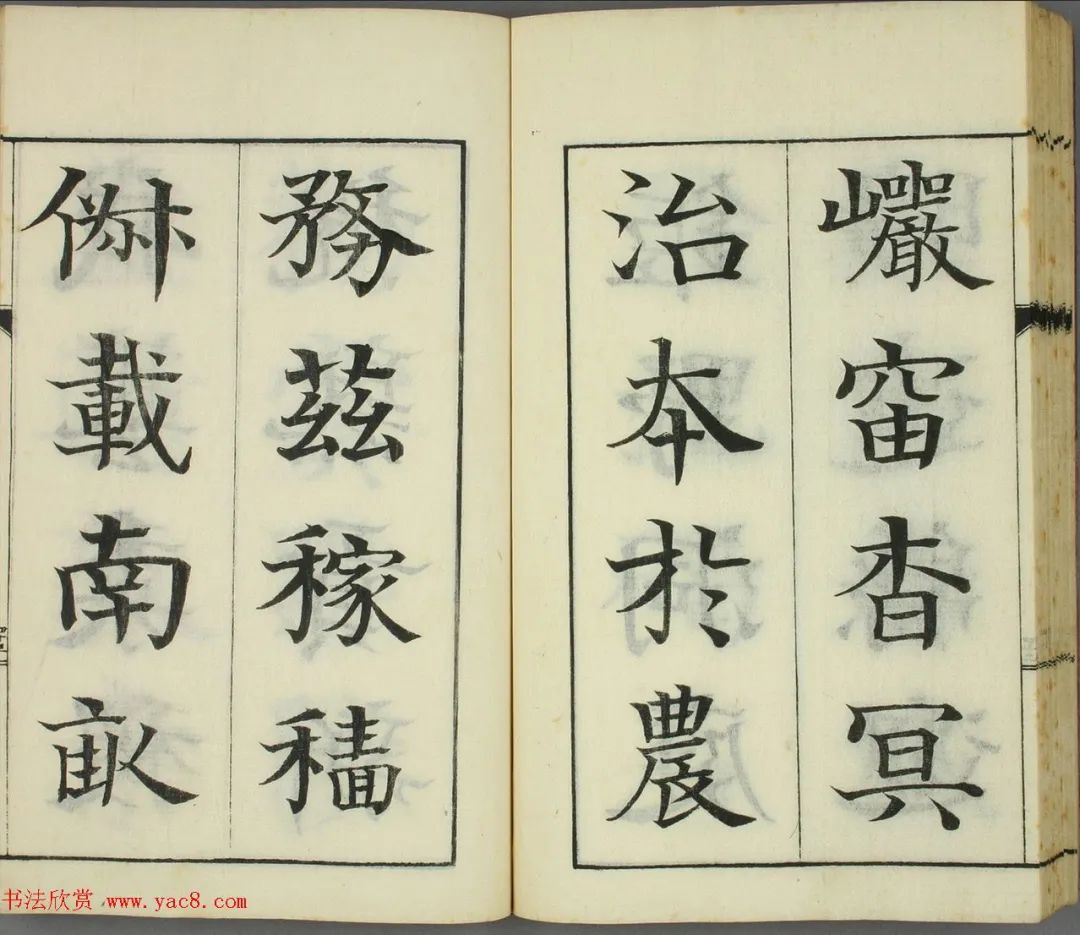 巗岫杳冥
治本於農
務茲稼穡
俶載南畝
书法欣赏 www.yac8.com